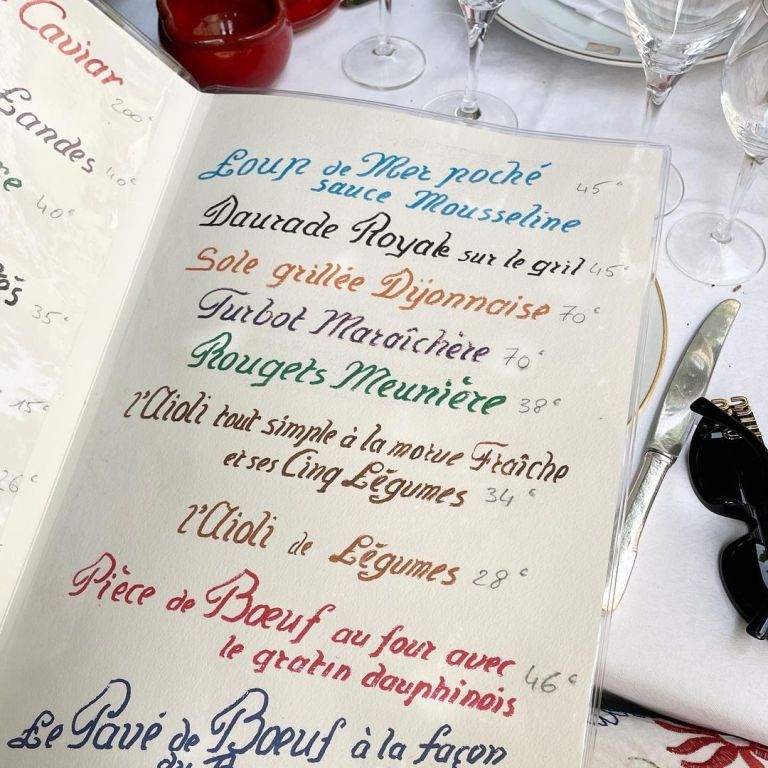 Caviar 200€
Landes 40€
40€
35€
15€
26€
Loup de Mer poché 45€
sauce Mousseline
Daurade Royale sur le gril 45€
Sole grillée Dijonnaise 70€
Turbot Maraîchère 70€
Rougets Meunière 38€
l'Aioli tout simple à la morue Fraîche
et ses Cinq Légumes 34€
l'Aioli de Légumes 28€
Pièce de Bœuf au four avec
le gratin dauphinois 46€
Le Pavé de Bœuf à la façon
du